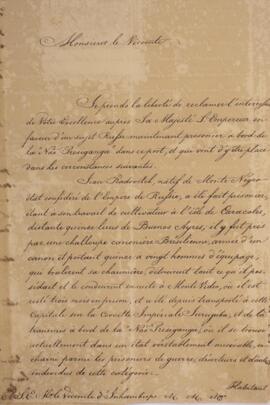 Monsieur le Vicomte,
Je prends la liberté de reclamer l'entremise
de Votre Excellence aupres Sa Majesté L'Empereur en
faveur d'un sujet Russe maintenant prisonnier à bord de
la "Náo Peresganga" dans ce port, et qui vient d'y être placé
dans les circonstances suivantes
Jean Radovitch, natif de Monte Negro
état confédéré de l'Empire de Russie, a été fait prisonnier,
étant à son travail de cultivateur à l'ile de Caracoles,
distante quinze lieues de Buenos Ayres, il y fut pris
par une challoupe canonniere Bresilienne, armée d'un
canon et portant quinze a vingt hommes d'équipage,
qui brulerent sa chaumiere, détruisirent tout ce qu'il pos-
sédait et le conduisirent ensuite à Monte Video, où il est
resté trois mois en prison, et a été depuis transporté à cette
Capitale sur la Corvette Impériale et de la
transmis à bord de la "Náo Peresganga", où il se trouve
actuellement dans un état véritablement misérable, en-
chainé parmi les prisonniers de guerre, déserteurs et d'autres
individus de cette catégorie.
Habitant
A S. E. M. le Vicomte d'Inhambupe